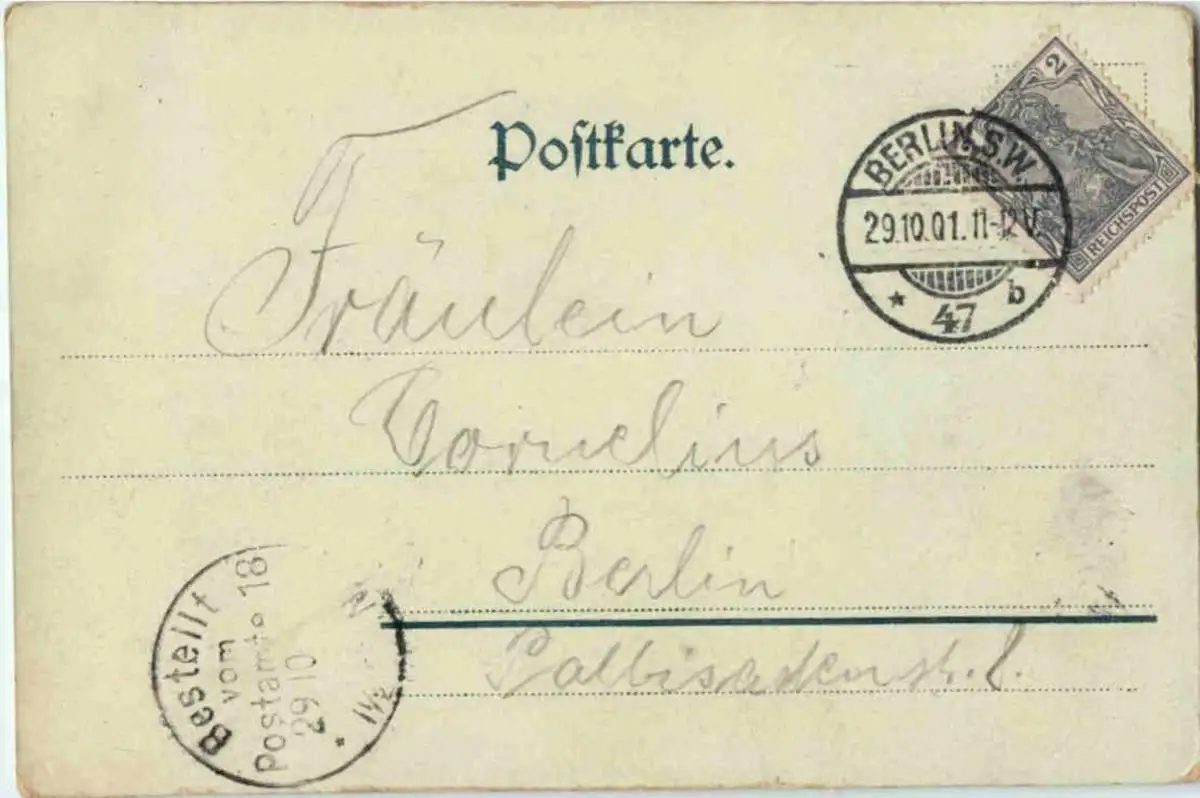 Postkarte.
2
REICHSPOST
BERLIN.S.W.
29.10.01.11-12V.
* 47 b
Fräulein
Cornelius
Berlin
Bestellt
vom
Postamte 18
29 10
* 1½ N